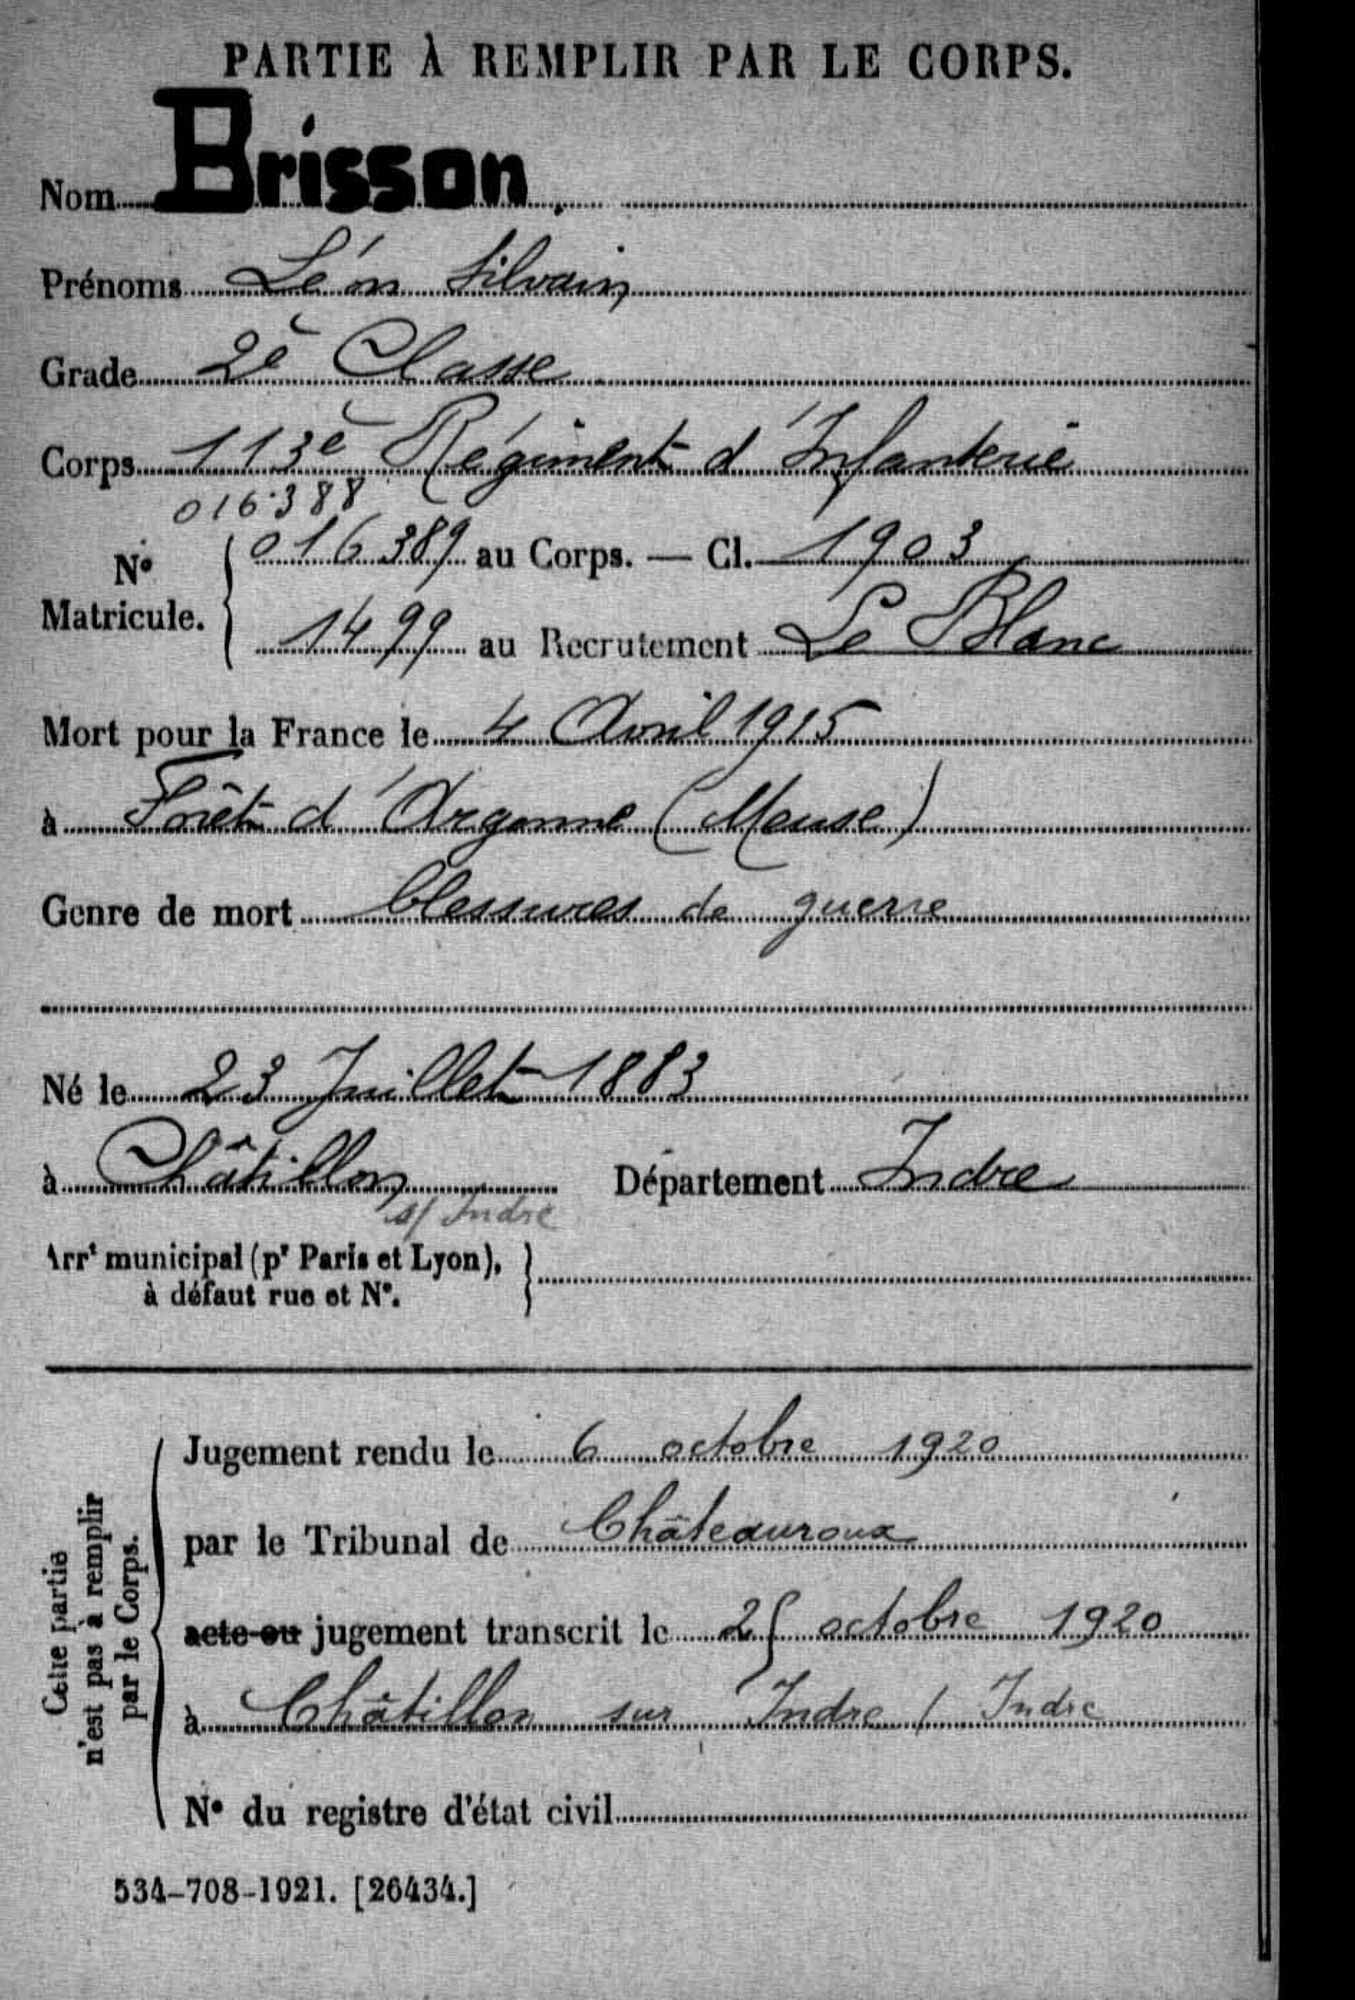 PARTIE À REMPLIR PAR LE CORPS.
Nom Brisson.
Prénoms Léon Silvain
Grade 2è Classe
Corps 113è Régiment d'Infanterie
016388
N° Matricule. 016389 au Corps. — Cl. 1903
1499 au Recrutement Le Blanc
Mort pour la France le 4 Avril 1915
à Forêt d'Argonne (Meuse)
Genre de mort blessures de guerre
Né le 23 Juillet 1883
à Châtillon Département Indre
s/ Indre
Arrt municipal (pr Paris et Lyon),
à défaut rue et N°.
Cette partie
n'est pas à remplir
par le Corps.
Jugement rendu le 6 octobre 1920
par le Tribunal de Châteauroux
acte ou jugement transcrit le 25 octobre 1920
à Châtillon sur Indre / Indre
N° du registre d'état civil
534-708-1921. [26434.]